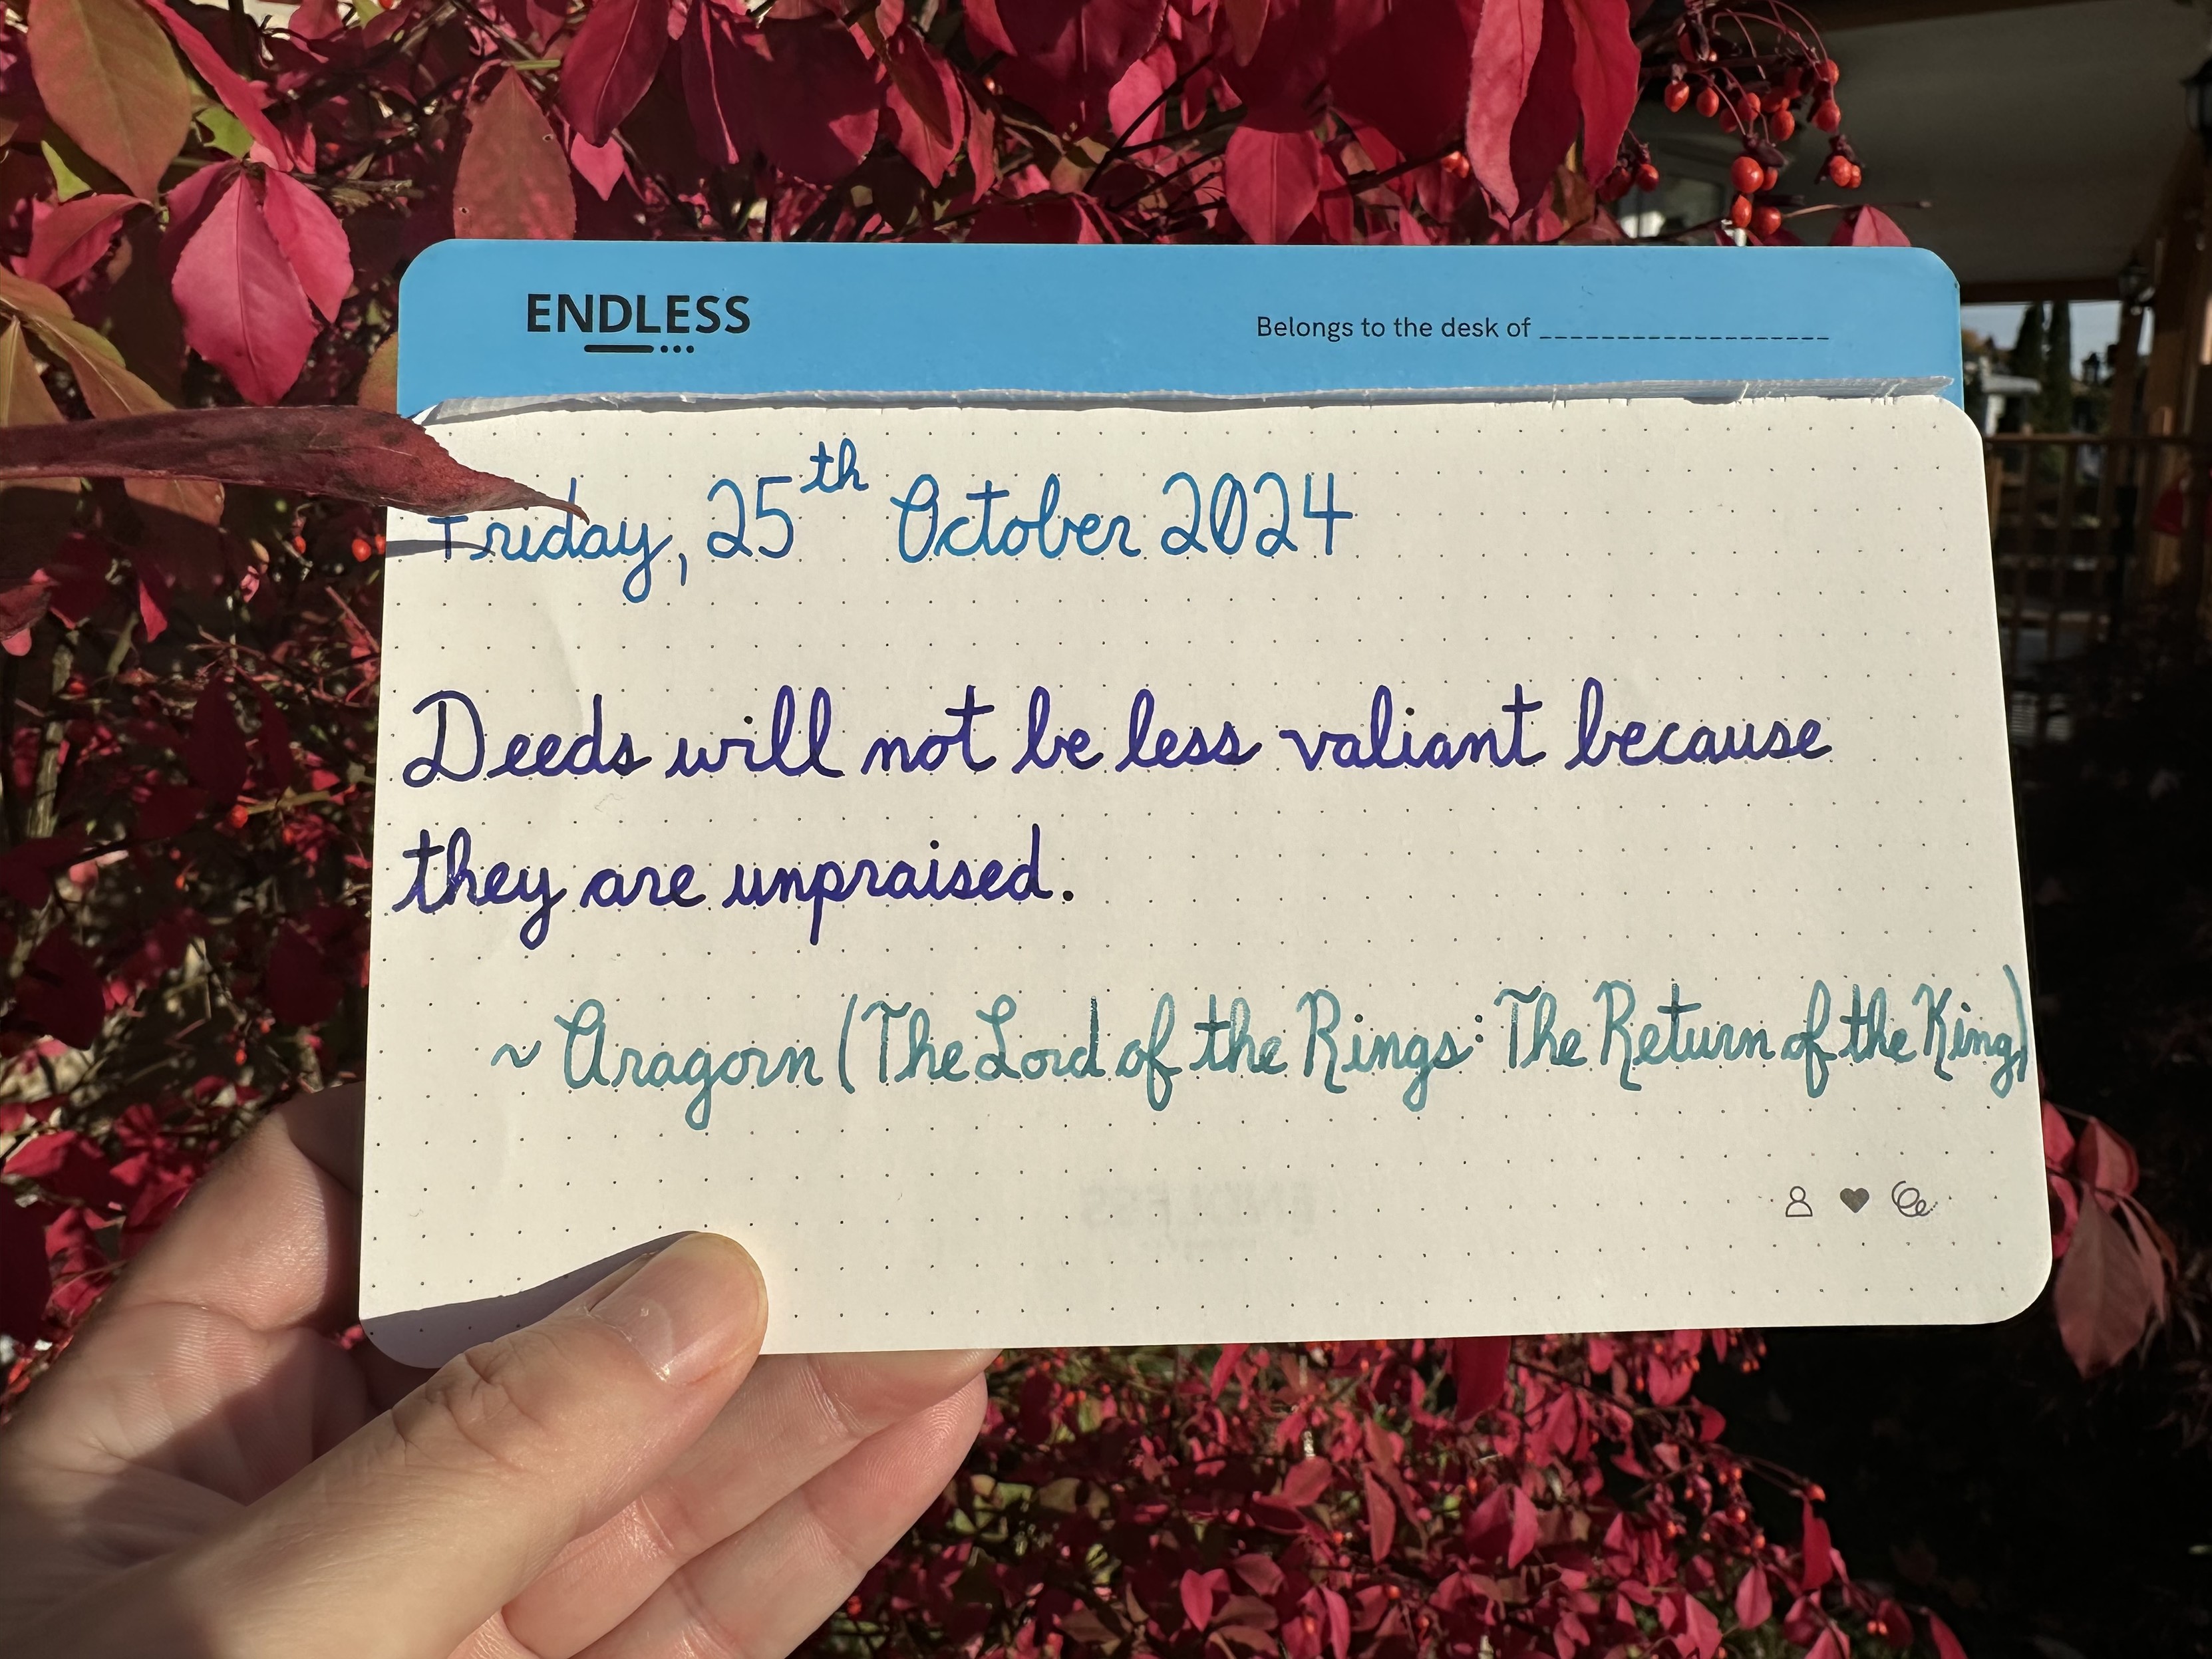 ENDLESS
Belongs to the desk of
Friday, 25th October 2024
Deeds will not be less valiant because
they are unpraised.
~ Aragorn (The Lord of the Rings: The Return of the King)
ENDLESS